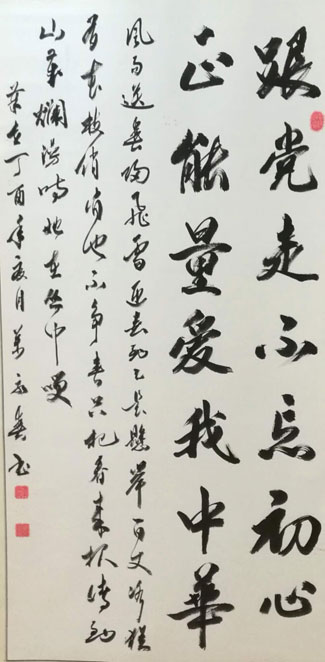 跟党走不忘初心
正能量愛我中華
風雨送春归飛雪迎春到已是懸崖百丈冰猶
有花枝俏俏也不争春只把春来报待到
山花爛漫時她在丛中笑
丁酉年夏月 书